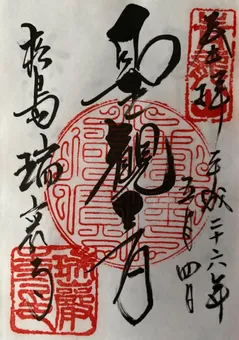 奉拝
平成二十六年
五月四日
聖観音
松島
瑞巌寺
瑞巌